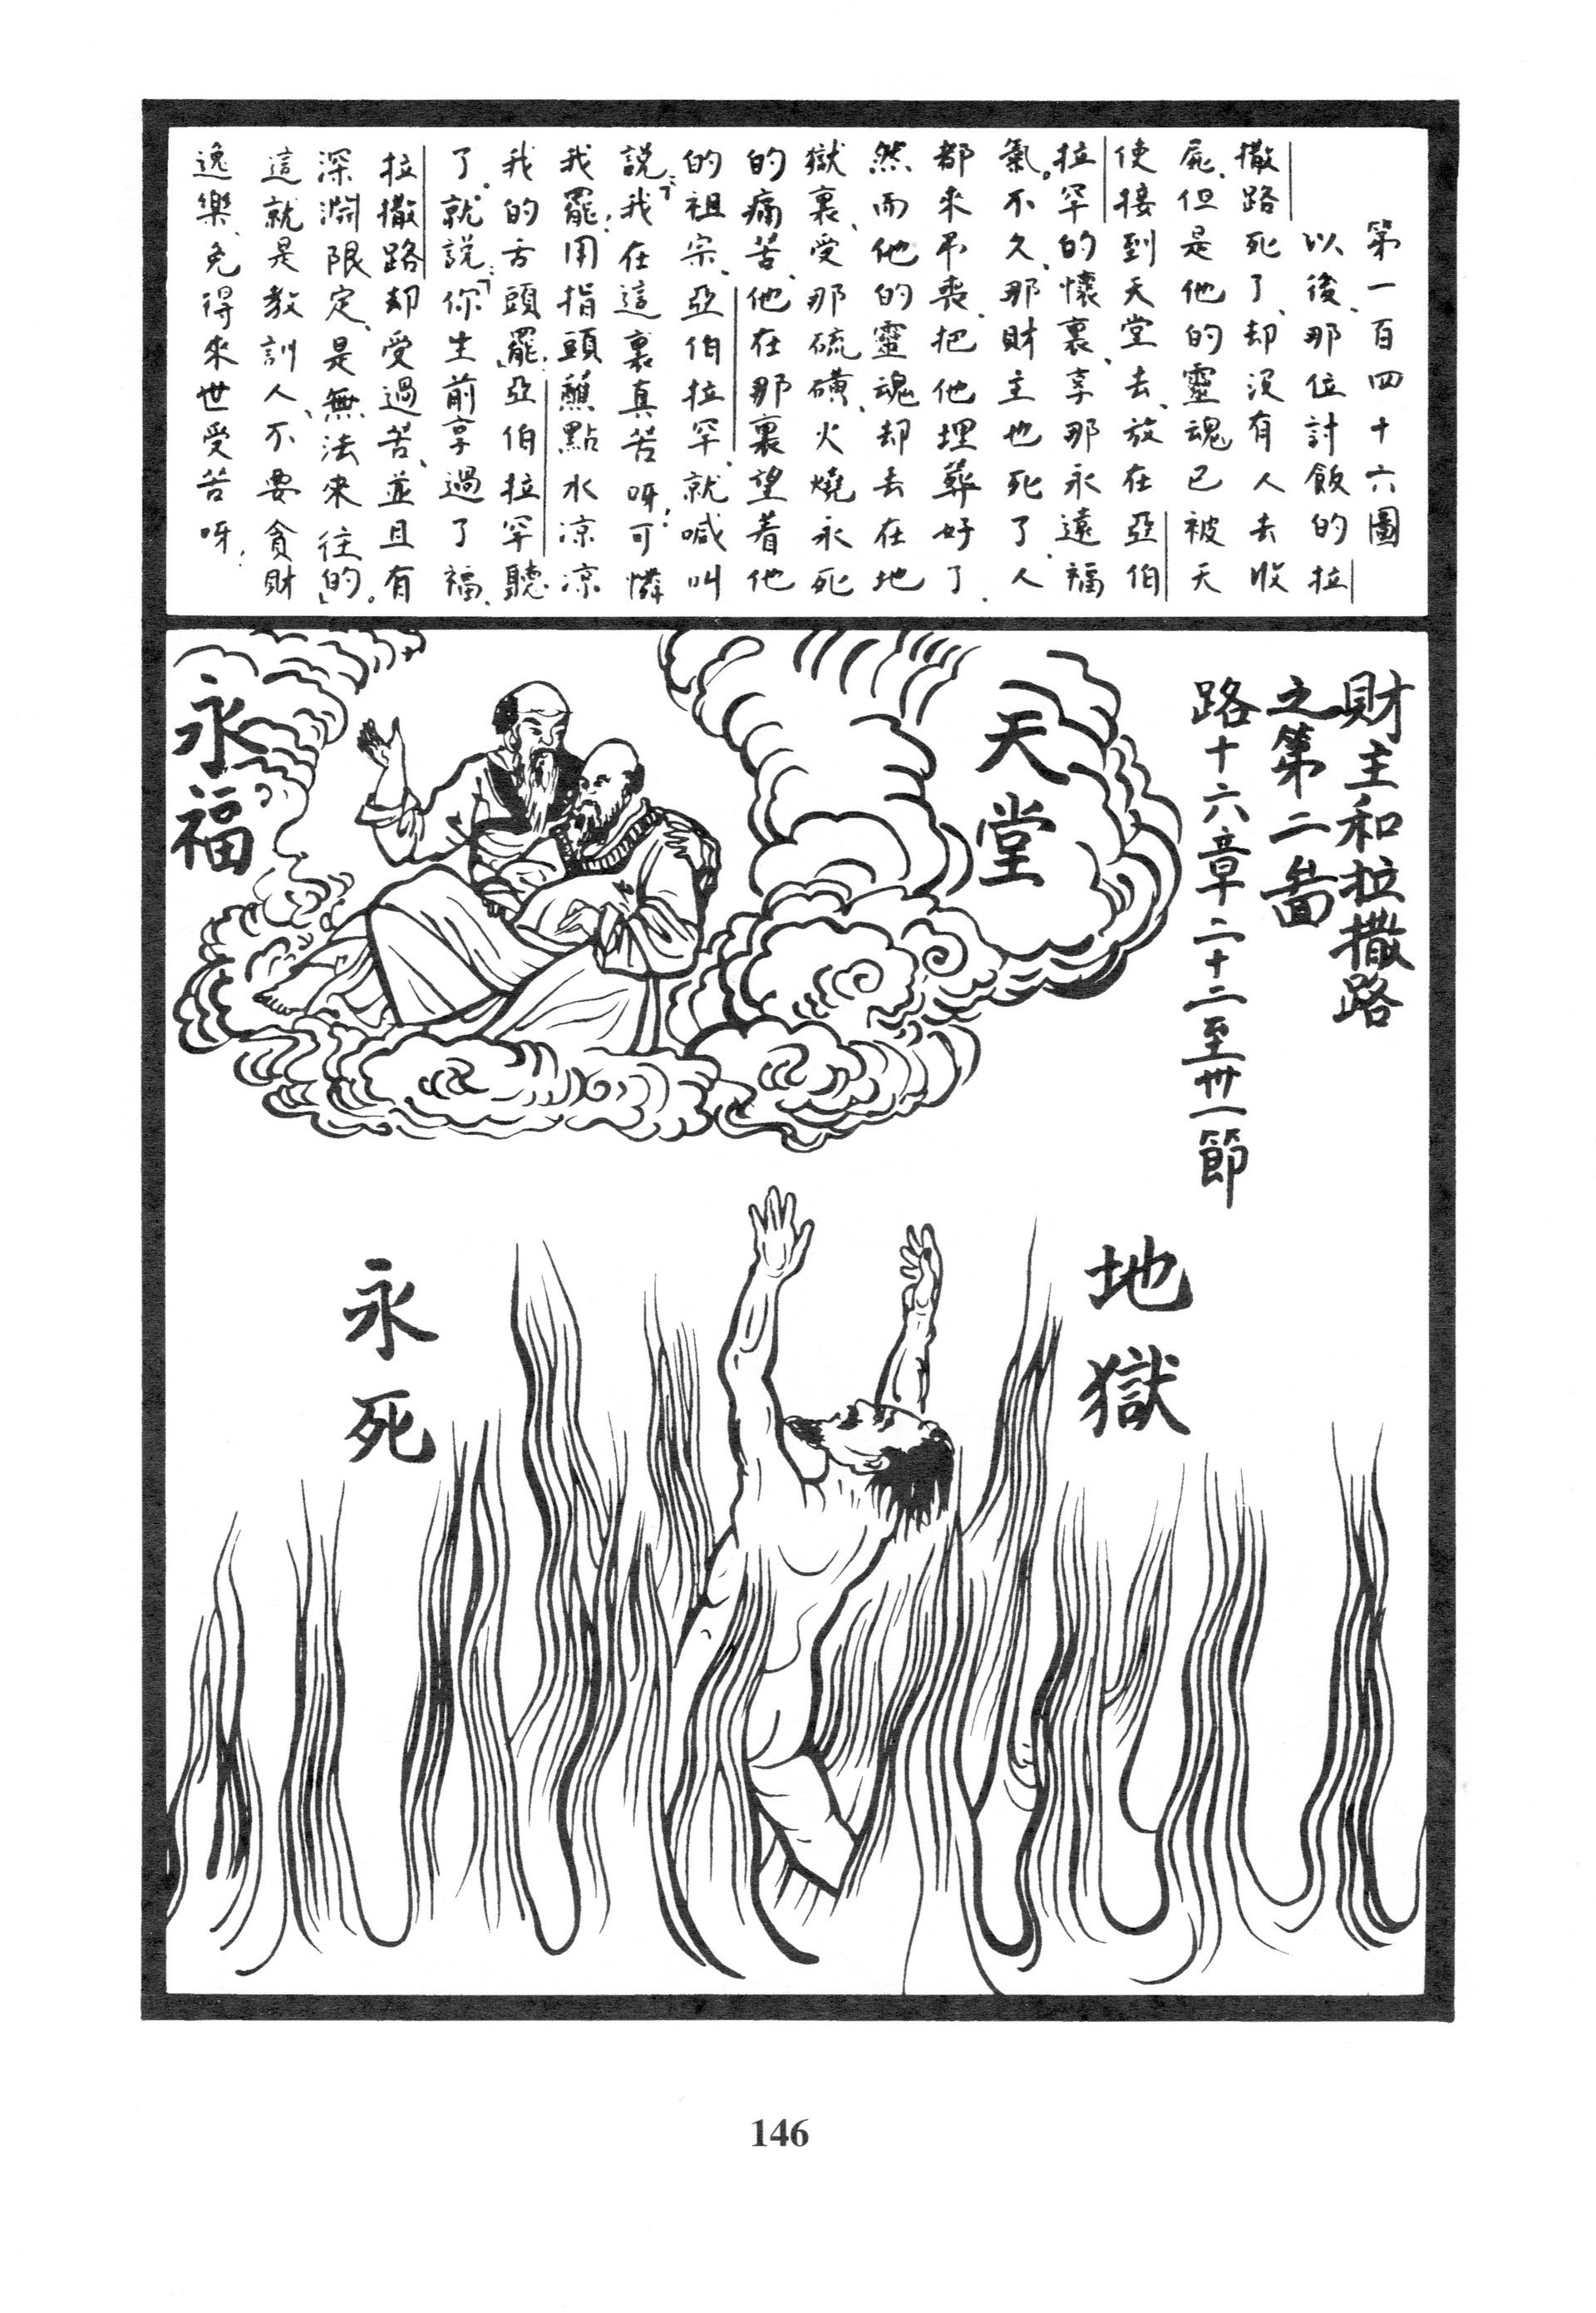 第一百四十六圖
以後、那位討飯的拉
撒路死了、却沒有人去收
屍、但是他的靈魂已被天
使接到天堂去、放在亞伯
拉罕的懷裏、享那永遠福
氣。不久、那財主也死了、人
都來吊喪、把他埋葬好了、
然而他的靈魂、却去在地
獄裏、受那硫磺火燒永死
的痛苦、他在那裏望着他
的祖宗、亞伯拉罕、就喊叫
說:「我在這裏真苦呀、可憐
我罷!用指頭蘸點水凉凉
我的舌頭罷」、亞伯拉罕聽
了。就說:「你生前享過了福、
拉撒路却受過苦、並且有
深淵限定、是無法來往的」。
這就是教訓人、不要貪財
逸樂、免得來世受苦呀!
財主和拉撒路
之第二啚
路十六章二十二至卅一節
天堂
永福
地獄
永死
146